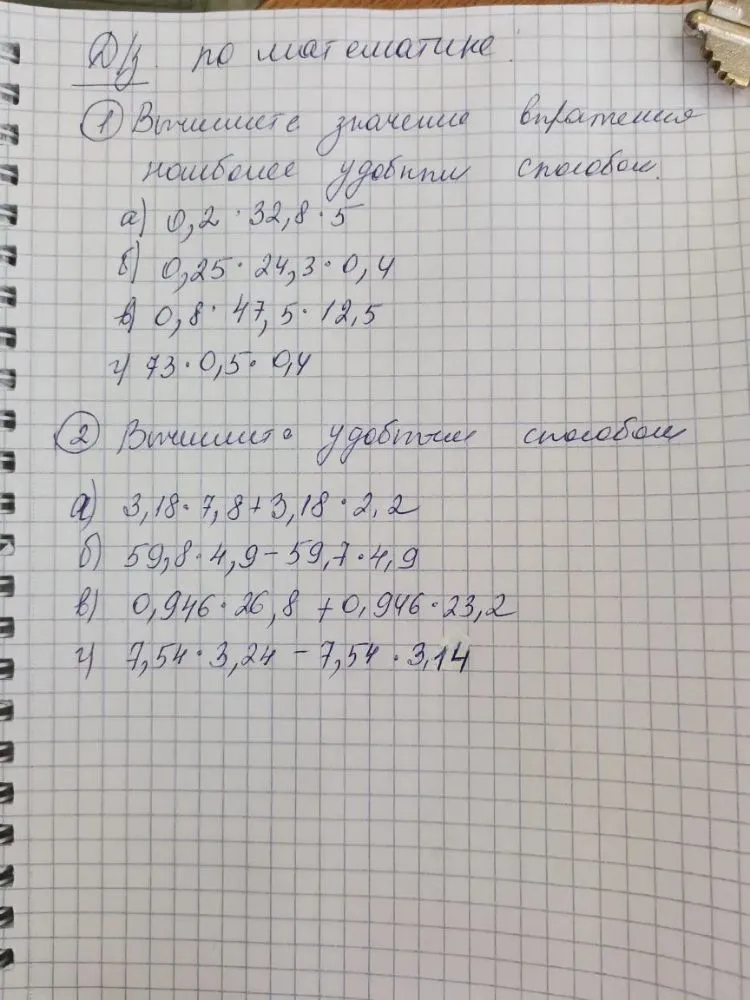 Д/з по математике:
① Вычислите значение выражения
наиболее удобным способом.
а) 0,2 · 32,8 · 5
б) 0,25 · 24,3 · 0,4
в) 0,8 · 47,5 · 12,5
г) 73 · 0,5 · 0,4
② Вычислите удобным способом
а) 3,18 · 7,8 + 3,18 · 2,2
б) 59,8 · 4,9 - 59,7 · 4,9
в) 0,946 · 26,8 + 0,946 · 23,2
г) 7,54 · 3,24 - 7,54 · 3,14